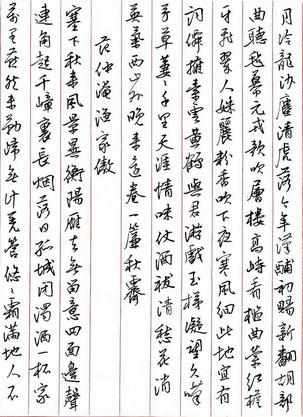 月冷龍沙塵清虎落今年漢酺初賜新翻胡部
曲聽氈幕元戎歌吹層樓高峙看檻曲縈紅檐
牙飛翠人姝麗粉香吹下夜寒風細此地宜有
詞僊擁素雲黃鶴與君游戲玉梯凝望久嘆
芳草萋〻千里天涯情味仗酒祓清愁花消
英氣西山外晚來還卷一簾秋霽
范仲淹漁家傲
塞下秋來風景異衡陽雁去無留意四面邊聲
連角起千嶂裏長烟落日孤城閉濁酒一杯家
萬里燕然未勒歸無計羌管悠〻霜滿地人不